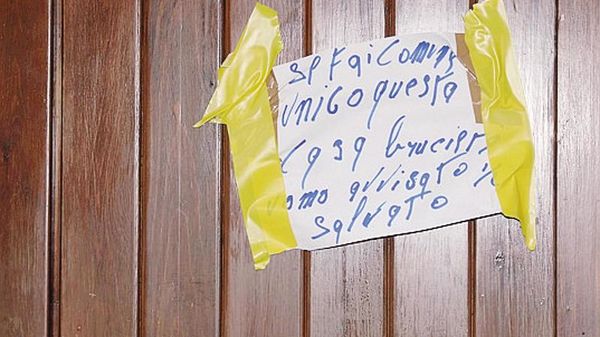 SE FAi Comune
UNiCO questa
CASA bruciera
uomo AvvisATO
SALVATO